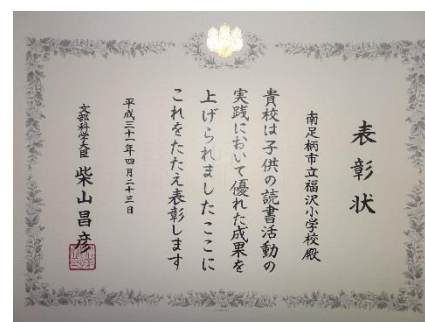 表彰状
南足柄市立福沢小学校殿
貴校は子供の読書活動の
実践において優れた成果を
上げられましたここに
これをたたえ表彰します
平成三十一年四月二十三日
文部科学大臣 柴山昌彦